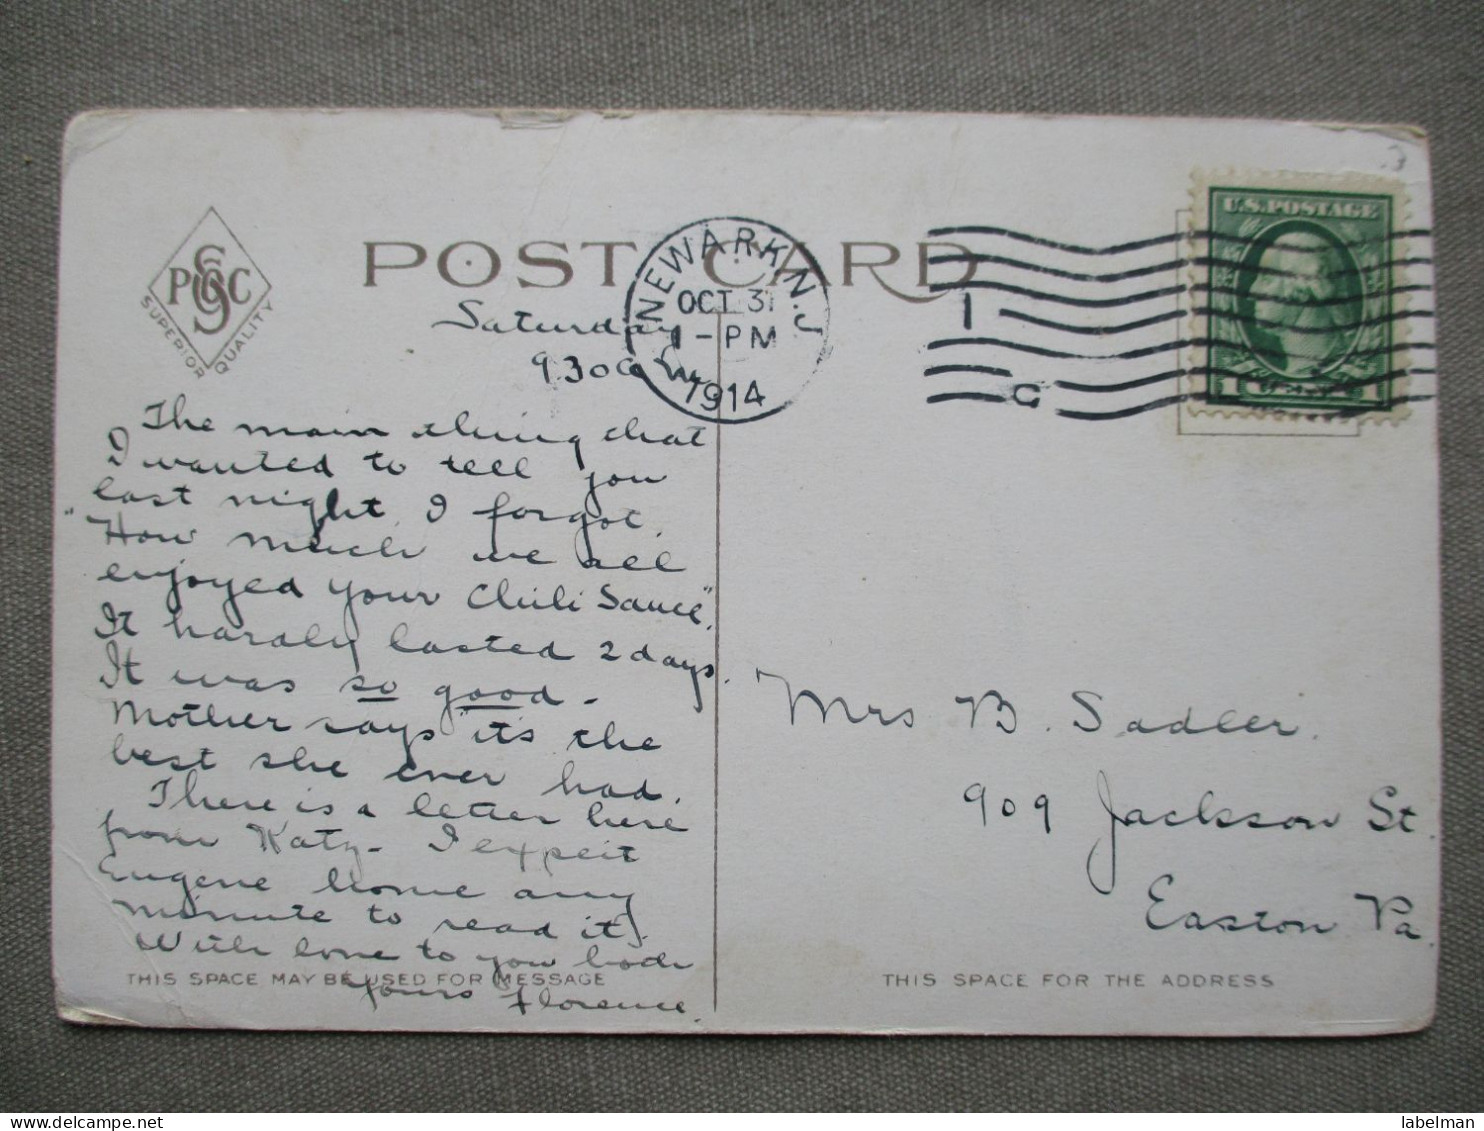 POST CARD
PSGC
SUPERIOR QUALITY
NEWARK, N.J
OCT 31
1-PM
1914
1
C
U.S. POSTAGE
1 1
Saturday
9.30 a m
The main thing that
I wanted to tell you
last night, I forgot.
"How much we all
enjoyed your Chili Sauce".
It hardly lasted 2 days.
It was so good -
Mother says it's the
best she ever had.
There is a letter here
from Katy - I expect
Eugene home any
minute to read it.
With love to you both
Yours Florence.
THIS SPACE MAY BE USED FOR MESSAGE
Mrs B. Sadler.
909 Jackson St.
Easton Pa.
THIS SPACE FOR THE ADDRESS
www.delcampe.net
labelman